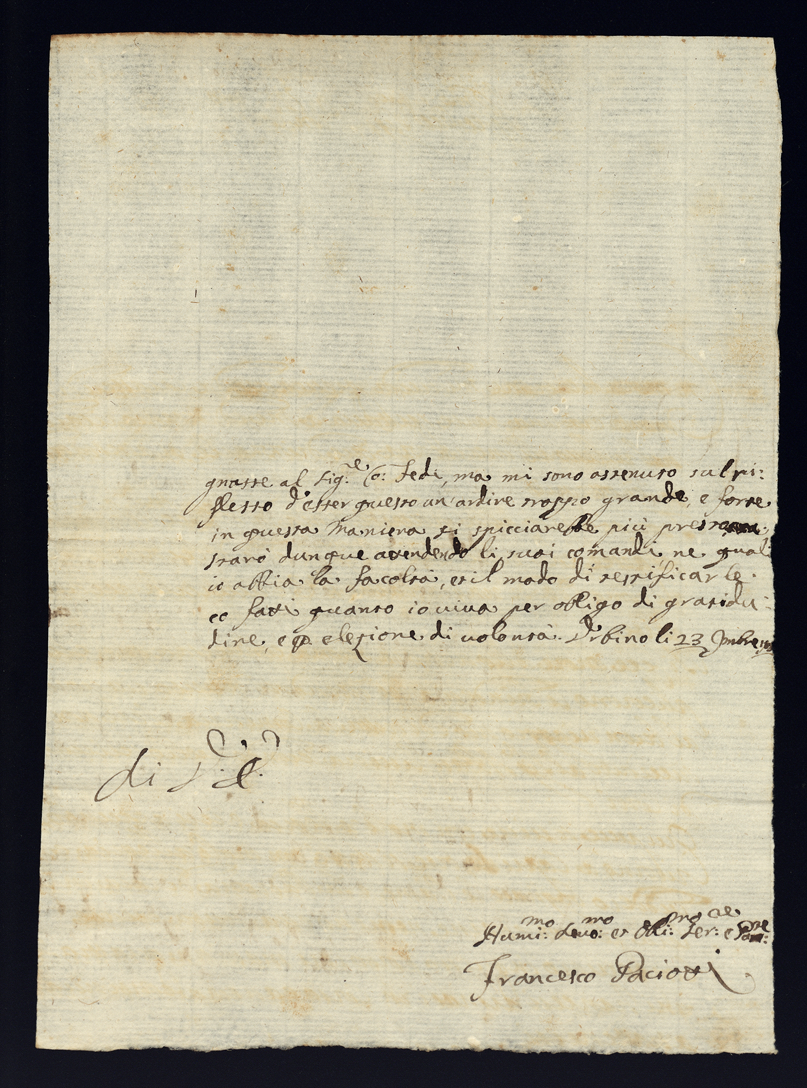 gnasse al Sig.re Co: Fedi, ma mi sono astenuto sul ri:
flesso d'esser questo un'ardire troppo grande, e forse
in questa maniera si spicciarebbe più presto
starò dunque attendendo li suoi comandi ne quali
io abbia la facoltà, et il modo di testificarle
co fatti quanto io viva per obligo di gratidu:
dine, e p elezione di volontà. Urbino li 23 9mbre
di V. E.
Humi:mo Devo:mo et Obli:mo Ser:re e
Francesco Paciotti